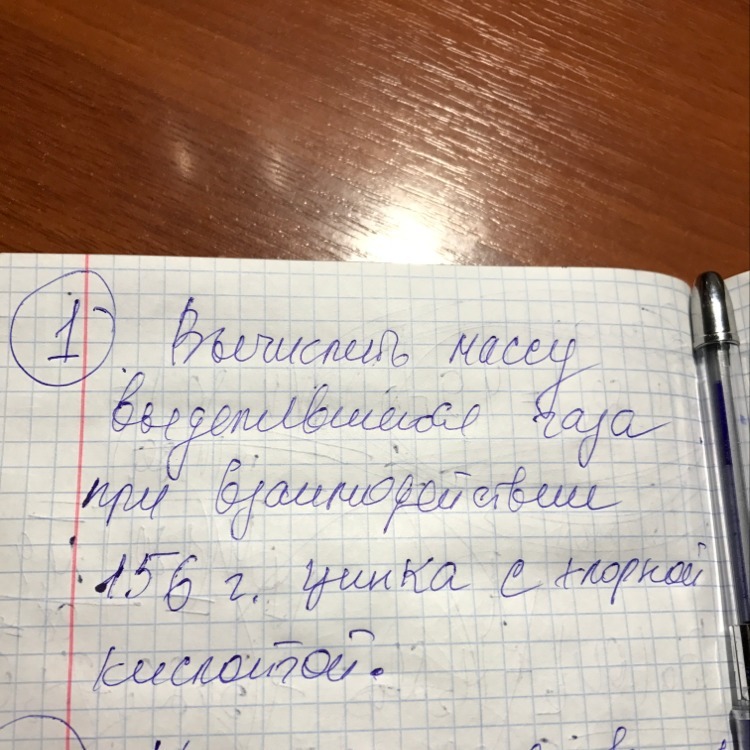 1 Вычислить массу
выделившегося газа
при взаимодействии
156 г. цинка с хлорной
кислотой.